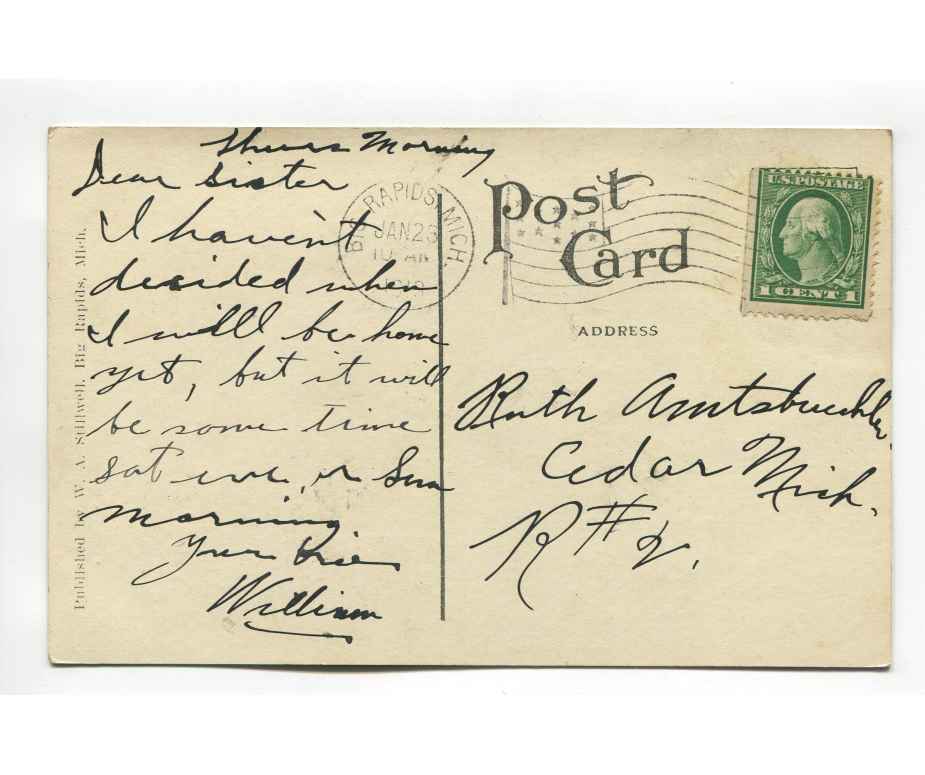 Thurs Morning
Dear Sister
I havent
decided when
I will be home
yet, but it will
be some time
sat eve, or Sun
morning
Your Bro
William
Published by W. A. Stillwell, Big Rapids, Mich.
BIG RAPIDS, MICH.
JAN 23
10 AM
Post
Card
U.S. POSTAGE
1 CENT 1
ADDRESS
Ruth Amtsbuechler
Cedar Mich.
R#2.